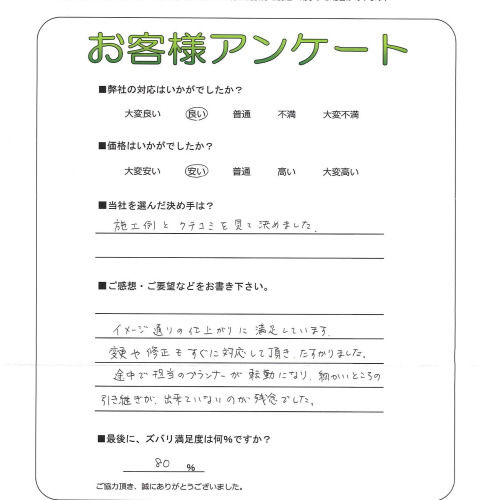 お客様アンケート
■弊社の対応はいかがでしたか？
大変良い 良い 普通 不満 大変不満
■価格はいかがでしたか？
大変安い 安い 普通 高い 大変高い
■当社を選んだ決め手は？
施工例とクチコミを見て決めました。
■ご感想・ご要望などをお書き下さい。
イメージ通りの仕上がりに満足しています。
変更や修正もすぐに対応して頂き、たすかりました。
途中で担当のプランナーが転勤になり、細かいところの
引き継ぎが、出来ていないのが残念でした。
■最後に、ズバリ満足度は何％ですか？
80 ％
ご協力頂き、誠にありがとうございました。